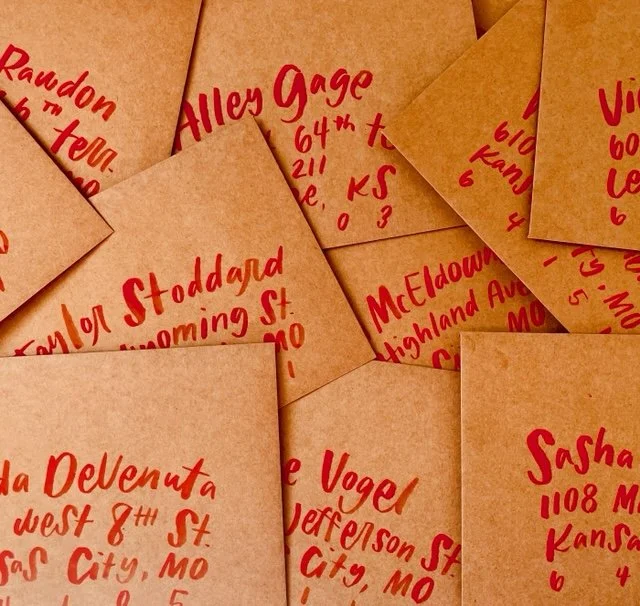 Rawdon
6TH terr.
MO
Alley Gage
64th
211
KS
0 3
610
Kans
6 4
Vi
60
Le
6
Taylor Stoddard
yoming St.
MO
1
McEldow
Highland Ave
MO
1 5
da DeVenuta
West 8TH St.
sas City, MO
e Vogel
Jefferson St
City, MO
Sasha
1108 M
Kansa
6 4